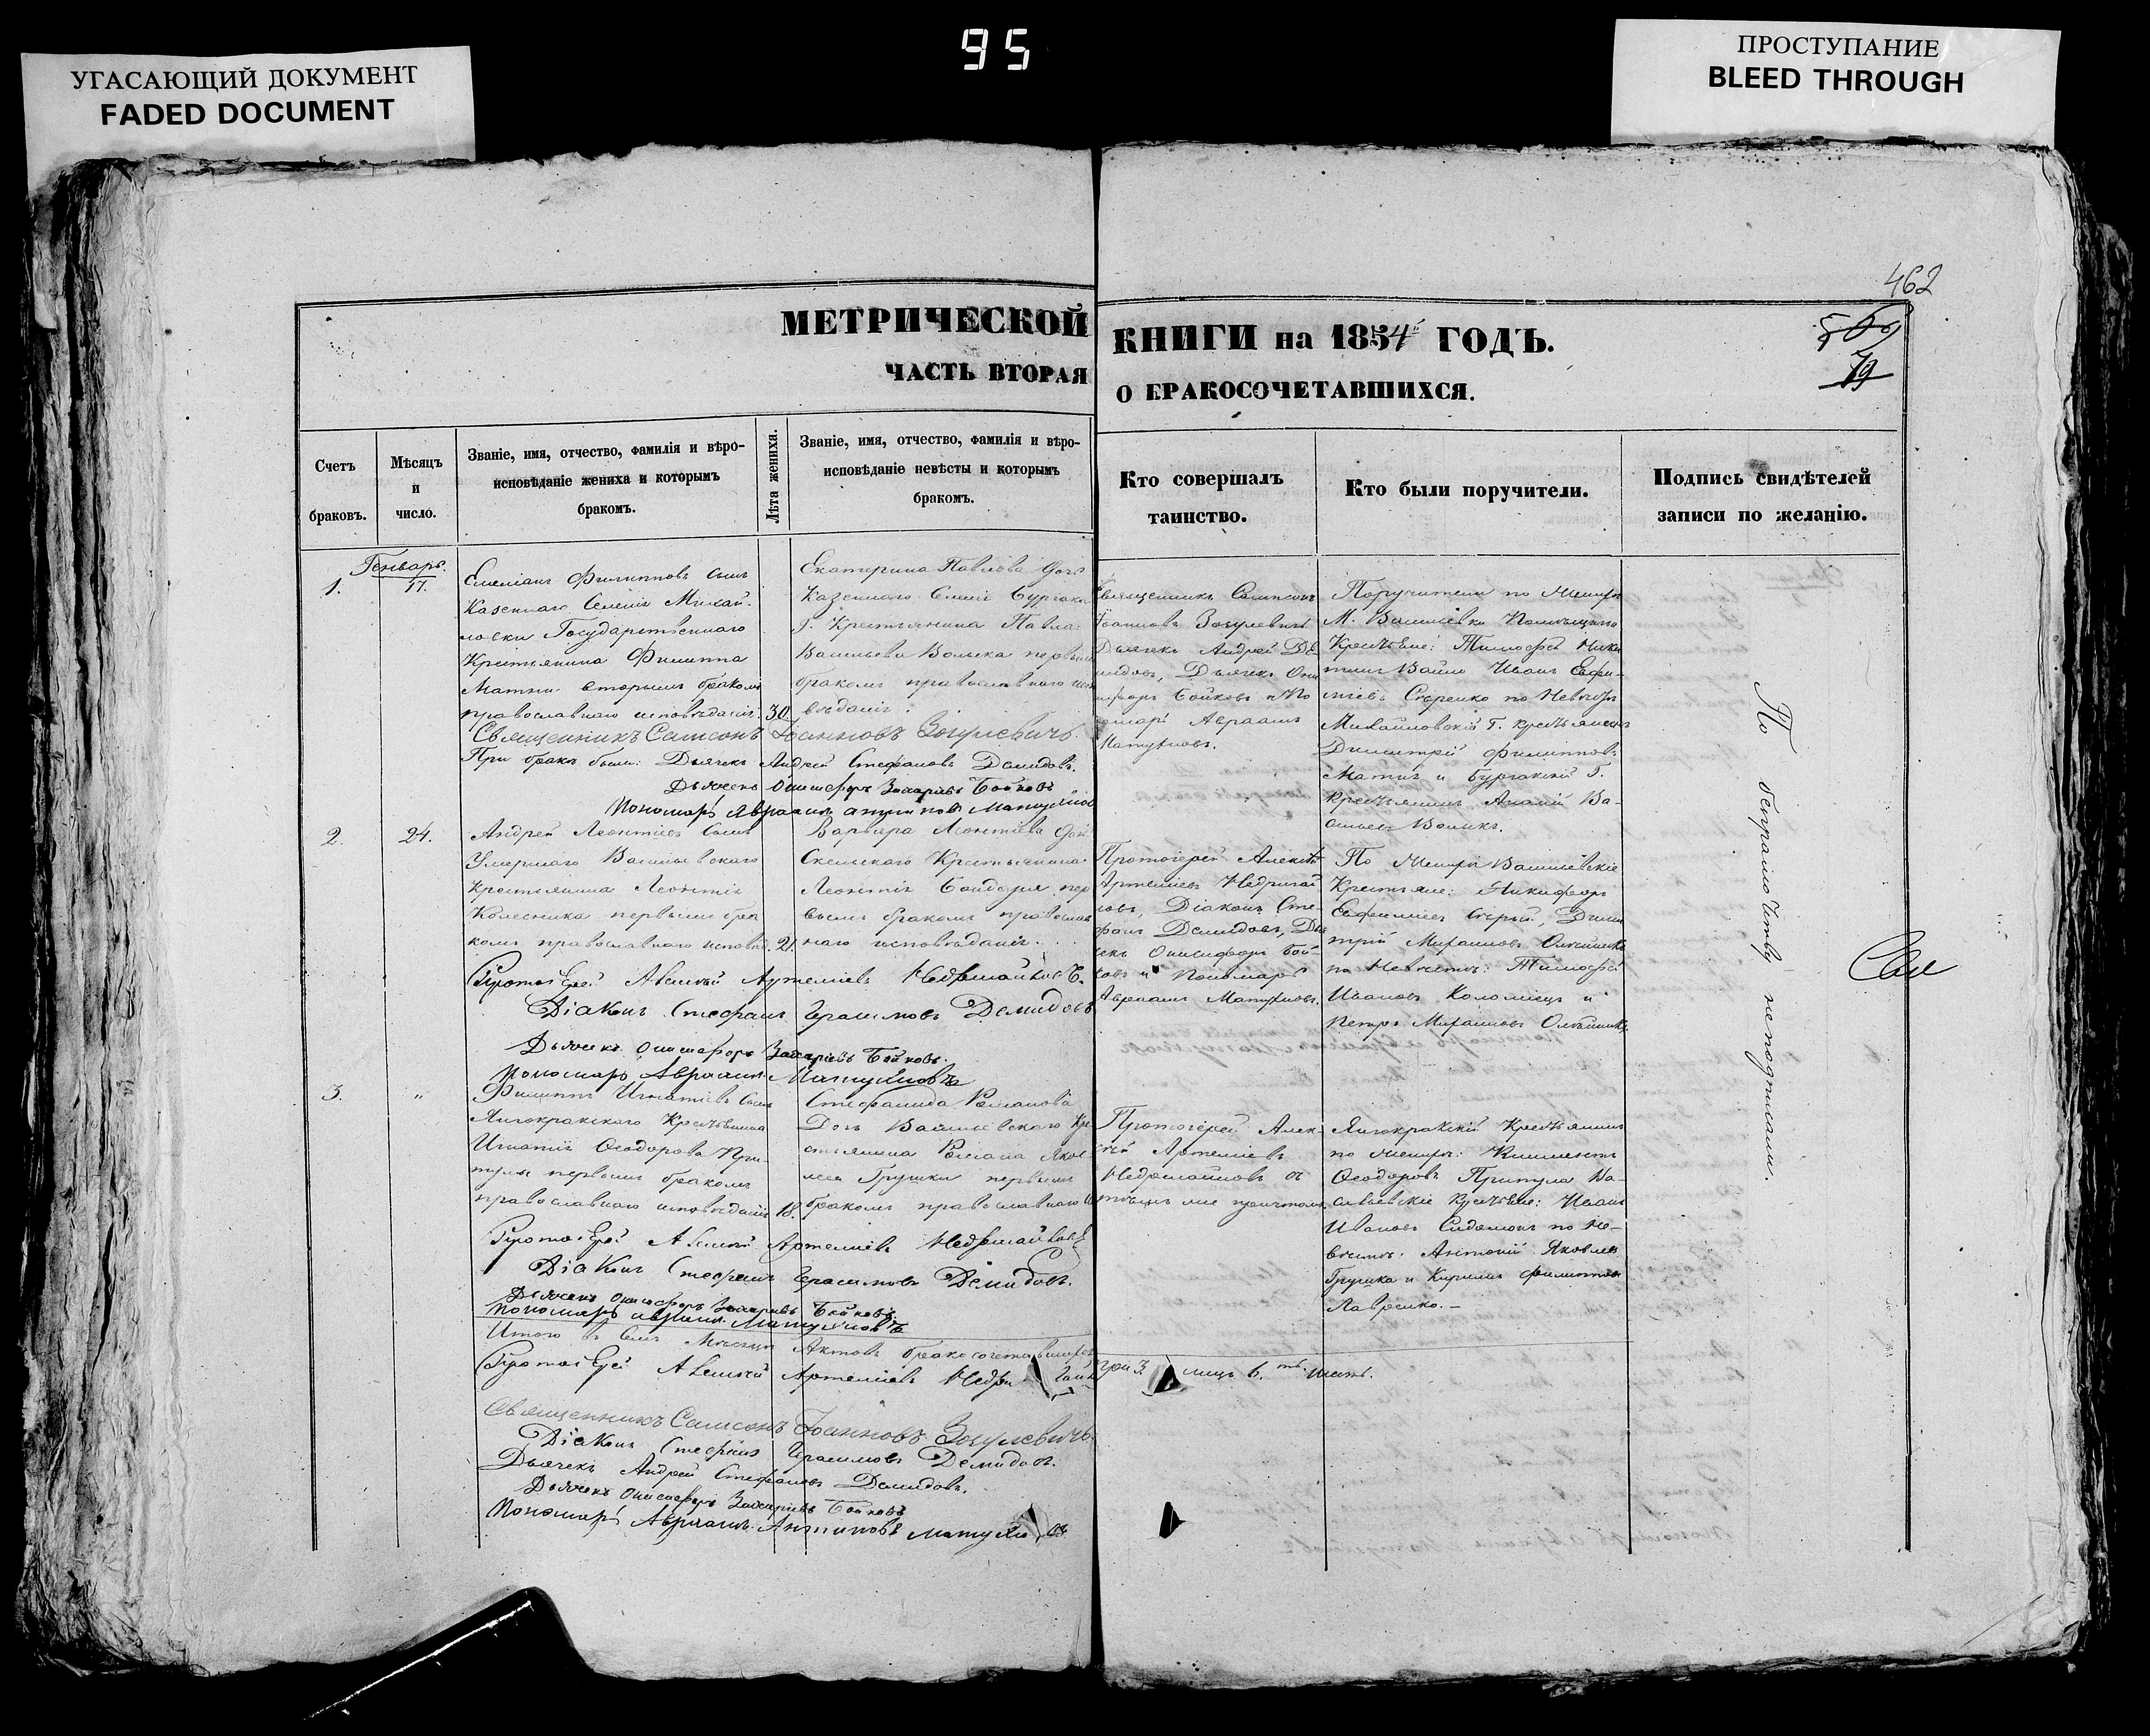 95
УГАСАЮЩИЙ ДОКУМЕНТ
FADED DOCUMENT
ПРОСТУПАНИЕ
BLEED THROUGH
462
79
МЕТРИЧЕСКОЙ
ЧАСТЬ ВТОРАЯ
КНИГИ на 1854й ГОДЪ.
О БРАКОСОЧЕТАВШИХСЯ.
Счетъ
браковъ.
Мѣсяцъ
и
число.
Званіе, имя, отчество, фамилія и вѣро-
исповѣданіе жениха и которымъ
бракомъ.
Лѣта жениха.
Званіе, имя, отчество, фамилія и вѣро-
исповѣданіе невѣсты и которымъ
бракомъ.
Кто совершалъ
таинство.
Кто были поручители.
Подпись свидѣтелей
записи по желанію.
Генварь.
1.
17.
Емеліанъ Филипповъ сынъ
Казеннаго Селенія Михай-
ловки Государственнаго
Крестьянина Филиппа
Матни вторымъ бракомъ
православнаго исповѣданія.
30.
Екатерина Павлова дочь
Казеннаго
Г. Крестьянина Павла
Васильева Волыка первымъ
бракомъ православнаго
вѣданія.
Священникъ Сампсонъ
Іоанновъ Зогулевичъ
Дьячекъ Андрей Де
мидовъ, Дьячекъ Они
сифоръ Бойковъ и По
номарь Авраамъ
Матуяновъ.
Поручители по Женихѣ
М. Василіевки Помѣщичьи
Крестьяне: Тимофей Ники
тинъ Иванъ Ефи-
міевъ по Невѣстѣ
Михайловскій Г. крестьянинъ
Димитрій Филипповъ
Матня и Г.
крестьянинъ Ва-
сильевъ Волыкъ.
Священникъ Сампсонъ Іоанновъ Зогулевичъ.
При бракѣ были: Дьячекъ Андрей Стефановъ Демидовъ.
Дьячекъ Онисифоръ Захаріевъ Бойковъ
Пономарь Авраамъ Антиповъ Матуяновъ
2.
24.
Андрей Леонтіевъ сынъ
Умершаго Васильевскаго
крестьянина Леонтія
Колесника первымъ бра
комъ православнаго исповѣд.
21.
Варвара Леонтіева дочь
Скельскаго Крестьянина
Леонтія Бондаря пер
вымъ бракомъ православ
наго исповѣданія.
Протоіерей Алексѣй
Артеміевъ Недригай
ловъ, Діаконъ Сте-
фанъ Демидовъ, Дья
чекъ Онисифоръ Бой-
ковъ и Пономарь
Авраамъ Матуяновъ.
По Женихѣ Василіевскіе
Крестьяне: Никифоръ
Евфиміевъ Сѣрый, Дими
трій Михаиловъ Олѣйникъ
по Невѣстѣ: Тимофей
Ивановъ Коломіецъ и
Петръ Михаиловъ Олѣйникъ.
Протоіерей Алексѣй Артеміевъ Недригайловъ.
Діаконъ Стефанъ Герасимовъ Демидовъ
Дьячекъ Онисифоръ Захаріевъ Бойковъ.
Пономарь Авраамъ Матуяновъ
3.
"
Филиппъ Игнатіевъ сынъ
Янчокракскаго Крестьянина
Игнатія Ѳеодорова При-
тулы первымъ бракомъ
православнаго исповѣданія
18.
Стефанида Романова
Дочь Василіевскаго Кре
стьянина Романа Яков
лева Грушки первымъ
бракомъ православнаго
Протоіерей Алек-
сѣй Артеміевъ
Недригайловъ съ
тѣмъ же причтомъ.
Янчокракскій Крестьянинъ
по Женихѣ: Климентъ
Ѳеодоровъ Притула Ва-
сильевскіе Крестьяне: Иванъ
Ивановъ по Не-
вѣстѣ: Антоній Яковлевъ
Грушка и Кирилъ Филипповъ
Лавренко.
Протоіерей Алексѣй Артеміевъ Недригайловъ
Діаконъ Стефанъ Герасимовъ Демидовъ.
Дьячекъ Онисифоръ Захаріевъ Бойковъ
Пономарь Авраамъ Матуяновъ
Итого въ семъ Мѣсяцѣ Актовъ бракосочетавшихся три 3. лицъ 6.ть шесть.
Протоіерей Алексѣй Артеміевъ
Священникъ Сампсонъ Іоанновъ Зогулевичъ.
Діаконъ Стефанъ Герасимовъ Демидовъ.
Дьячекъ Андрей Стефановъ Демидовъ.
Дьячекъ Онисифоръ Захаріевъ Бойковъ
Пономарь Авраамъ Антиповъ
По безграмотству неподписали.